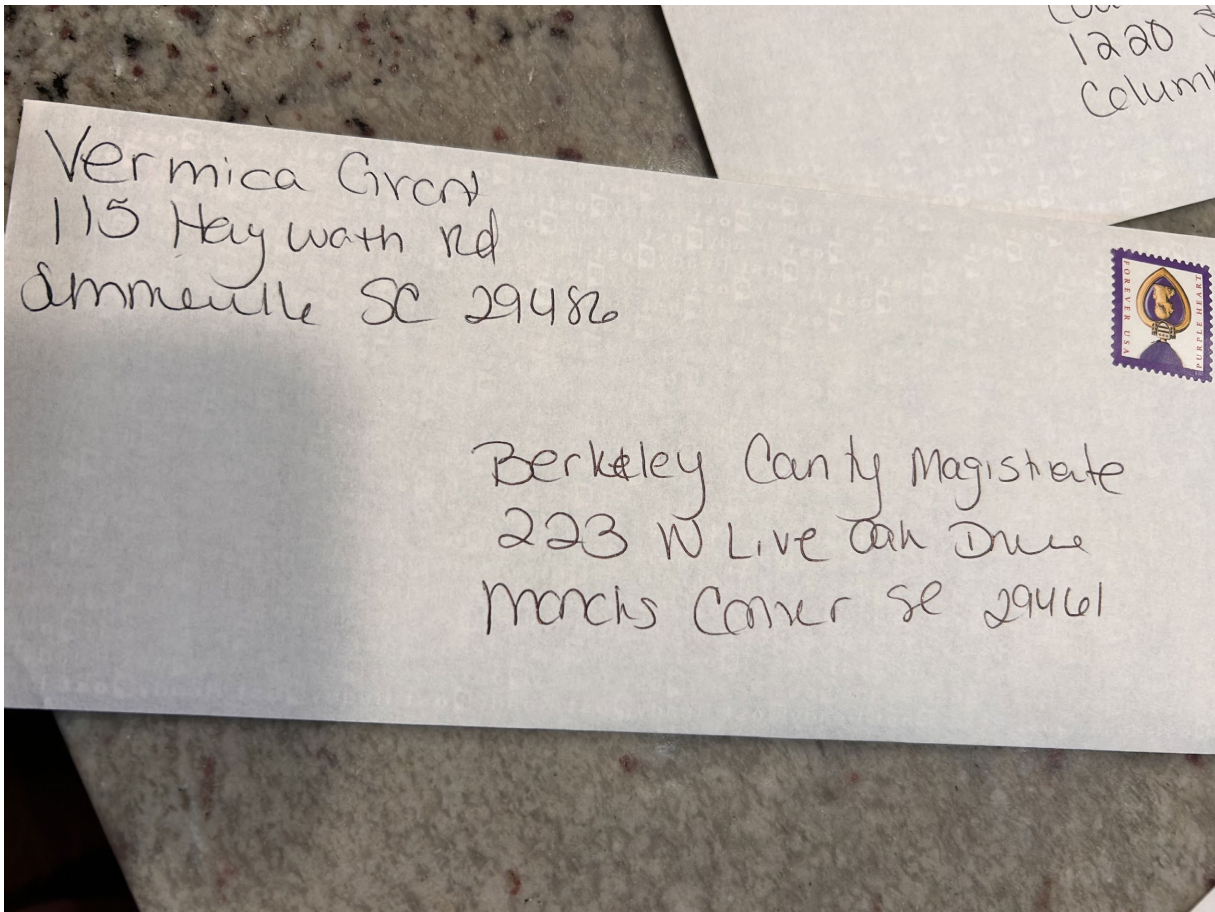 1220
Colum
Vermica Grant
115 Haywath Rd
Summerville SC 29486
FOREVER USA
PURPLE HEART
Berkeley County Magistrate
223 N Live Oak Drive
Moncks Corner SC 29461